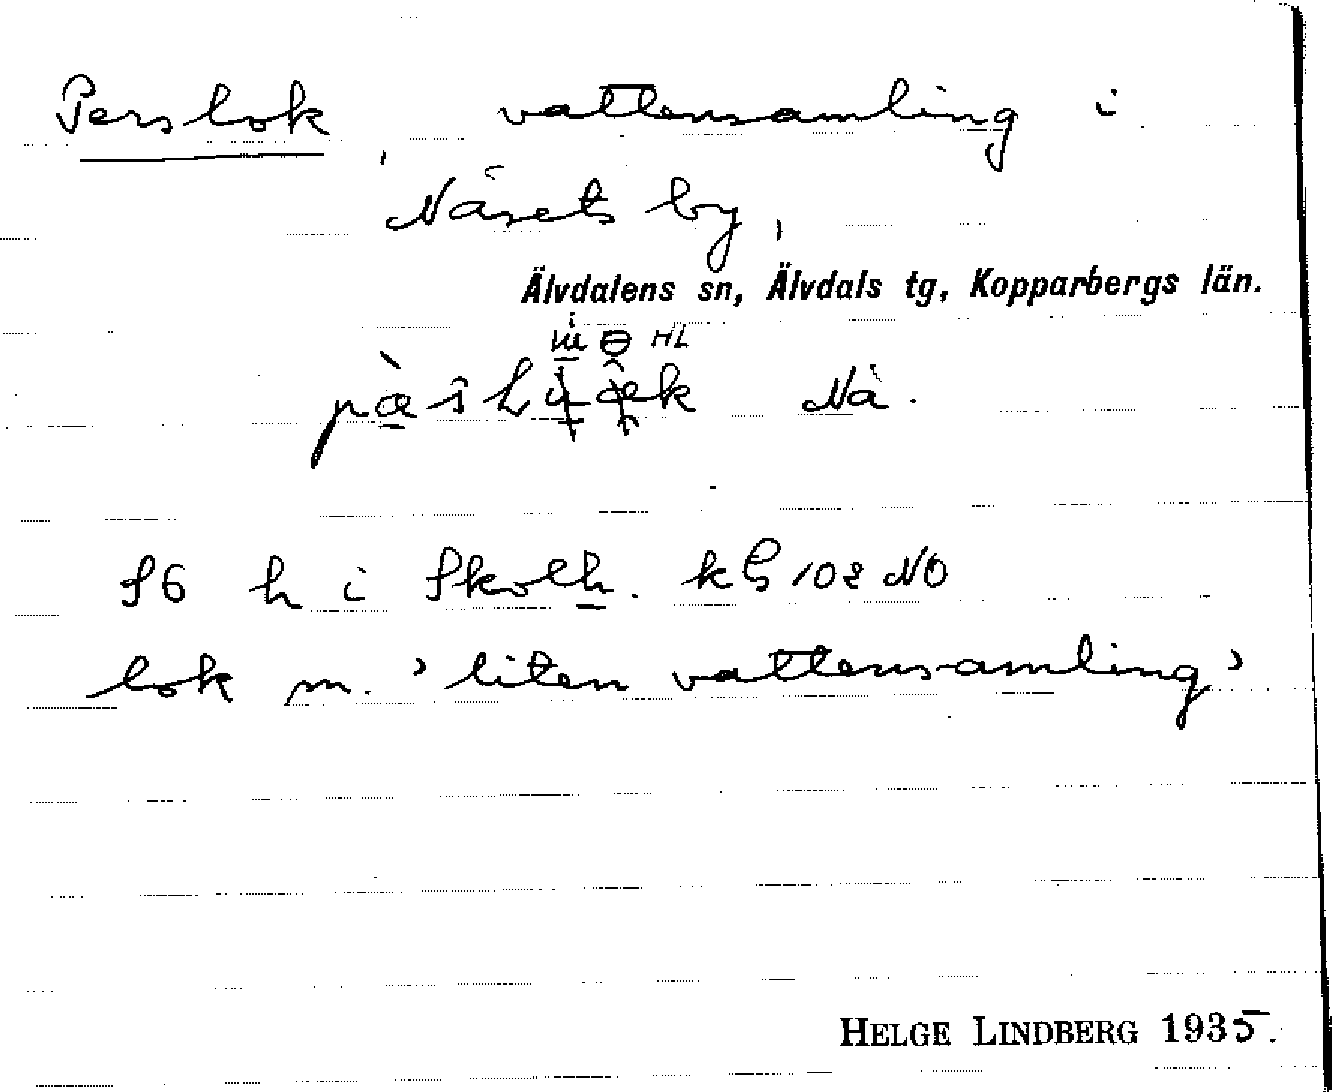 Perslok, vattensamling i
Näsets by,
Älvdalens sn, Älvdals tg, Kopparbergs län.
HL
Nä.
f6 h i Skolh. kB 102 NO
lok m. 'liten vattensamling'
HELGE LINDBERG 1935.